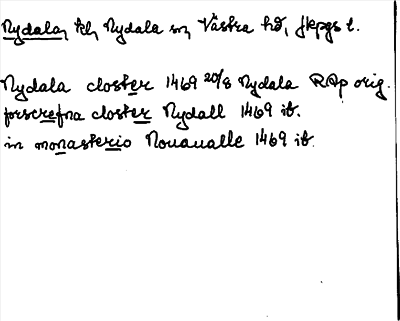 Nydala, kl, Nydala sn, Västra hd, Jkpgs l.
Nydala closter 1469 20/8 Nydala RAp orig.
forscrefna closter Nydall 1469 ib.
in monasterio Nouaualle 1469 ib.